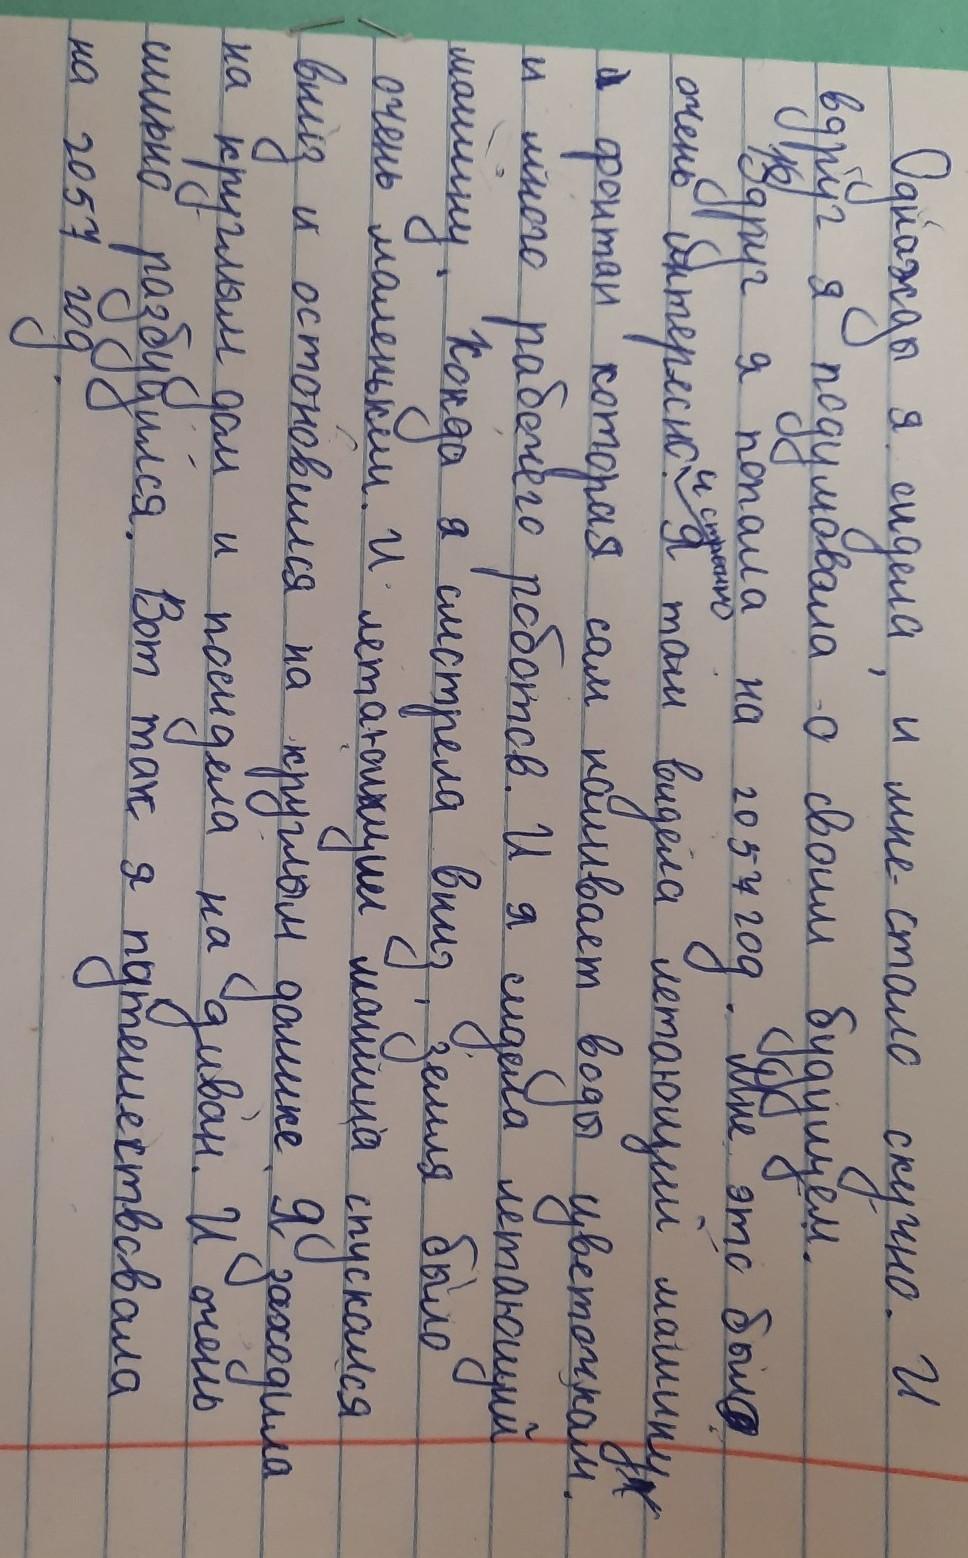 Однажды я сидела, и мне стало скучно. И
вдруг я подумовала о своим будущем.
Вдруг я попала на 2057 год. Мне это было
очень интересно и странно. Я там видела летающий машину
и фонтан которая сам наливает воды цветочкам.
и много рабочего роботов. И я сидела летающий
машину. Когда я смстрела вниз, земля было
очень маленьким. И летающием машина спускался
вниз и остоновился на круглым домике. Я заходила
на круглым дом и посидела на диван. И очень
сильно разбудился. Вот так я путешествовала
на 2057 год.